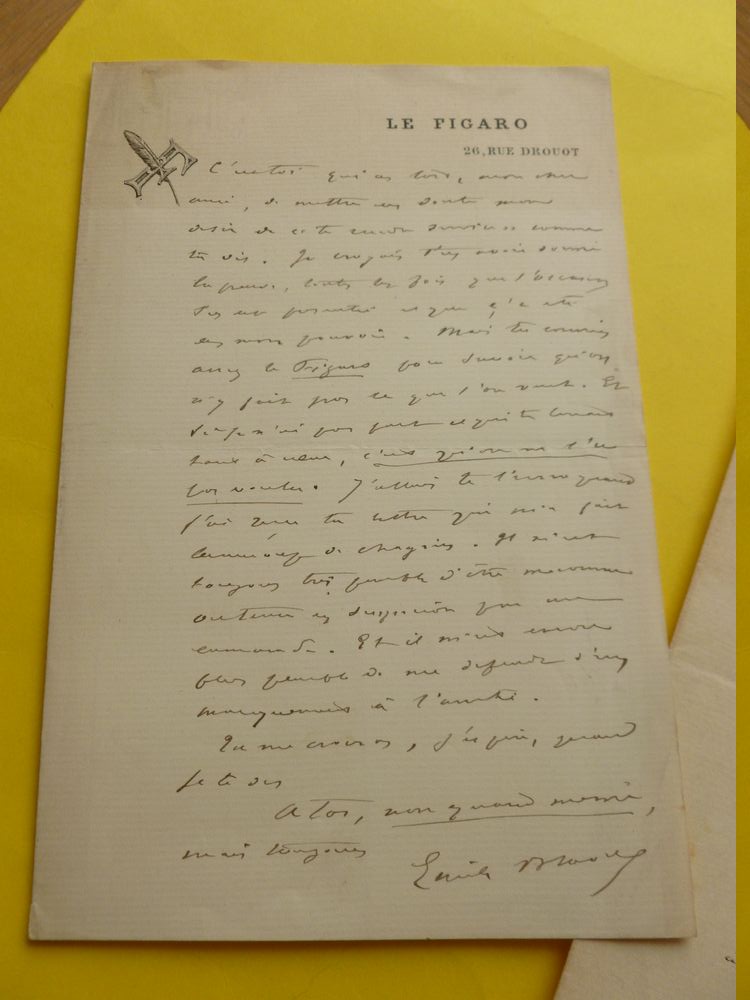 LE FIGARO
26, RUE DROUOT
C'est toi qui as tort, mon cher
ami, de mettre en doute mon
désir de
tu dis. Je croyais t'en avoir donné
la preuve, toutes les fois que l'occasion
s'en est présentée et que ç'a été
en mon pouvoir. Mais tu connais
assez le Figaro pour savoir qu'on
n'y fait pas ce que l'on veut. Et
si je n'ai pas fait ce qui te tenait
tant à cœur, c'est qu'on ne l'a
pas voulu. J'allais te l'écrire quand
j'ai reçu ta lettre qui m'a fait
beaucoup de chagrin. Il m'est
toujours très pénible d'être méconnu
et tenu en suspicion par un
camarade. Et il m'est encore
plus pénible de me défendre d'un
manquement à l'amitié.
Tu me croiras, j'espère, quand
je te dis
A toi, non quand même,
mais toujours
Emile Blavet